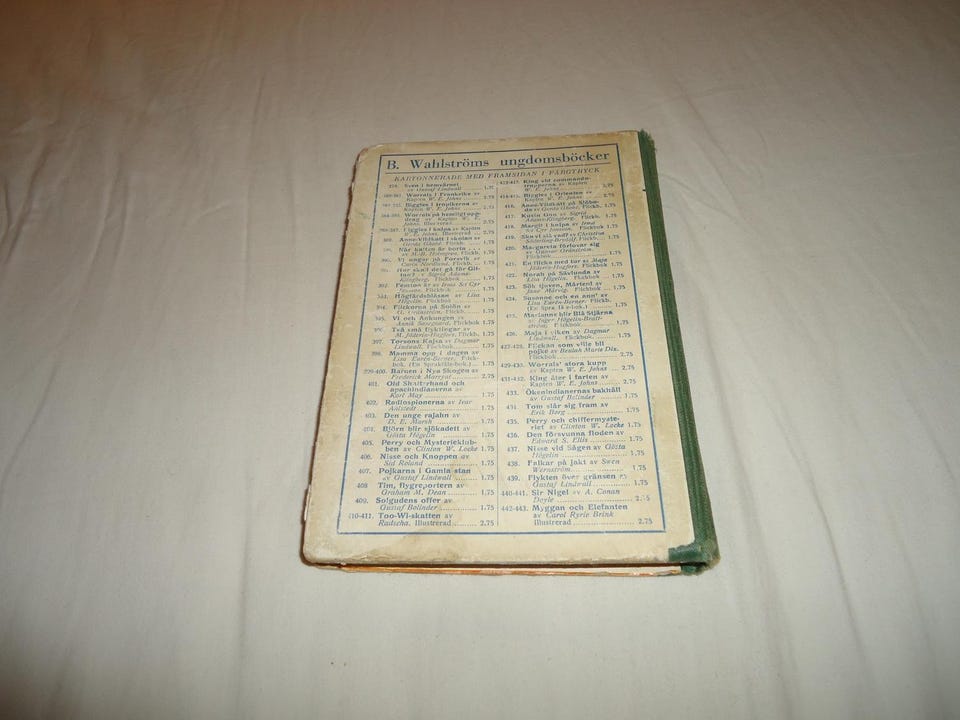 B. Wahlströms ungdomsböcker
KARTONNERADE MED FRAMSIDAN I FÄRGTRYCK
Sven i hemvärnet
av Gustaf Lindwall 1.75
Worrals i Frankrike av
Kapten W. E. Johns 2.75
Biggles i tropikerna av
Kapten W. E. Johns 2.75
Worrals på hemligt upp-
drag av Kapten W. E.
Johns. Illustrerad 2.75
Biggles i knipa av Kapten
W. E. Johns. Illustrerad 2.75
389. Anne-Vibikatt i skolan av
Gerda Ghobé. Flickb. 1.75
När katten är borta
av M.-B. Holmgren. Flickb. 1.75
Vi ungar på Forsvik av
Carin Nordlund. Flickb. 1.75
Hur skall det gå för Git-
tan? av Sigrid Adams-
Klingberg. Flickbok 1.75
392. Pension är av Irma S:t Cyr
Flickbok 1.75
Högfärdsblåsan av Lisa
Högelin. Flickbok 1.75
394. Flickorna på Solön av
G. Ördnström. Flickbok 1.75
395. Vi och Ankungen av
Annik Saxegaard. Flickbok 1.75
396. Två små flyktingar av
M. Jäderin-Hagfors. Flickb. 1.75
397. Torsons Kajsa av Dagmar
Lindwall. Flickbok 1.75
398. Mamma opp i dagen av
Lisa Eurén-Berner. Flick-
bok. (En Språkfåle-bok.) 1.75
399-400. Barnen i Nya Skogen av
Frederick Marryat 2.75
401. Old Shatterhand och
apachindianerna av
Karl May 1.75
402. Radiospionerna av Ivar
Ahlstedt 1.75
403. Den unge rajahn av
D. E. Marsh 1.75
404. Björn blir sjökadett av
Gösta Högelin 1.75
405. Perry och Mysterieklub-
ben av Clinton W. Locke 1.75
406. Nisse och Knoppen av
Sid Roland 1.75
407. Pojkarna i Gamla stan
av Gustaf Lindwall 1.75
408 Tim, flygreportern av
Graham M. Dean 1.75
409. Solgudens offer av
Gustaf Bolinder 1.75
410-411. Too-Wi-skatten av
Radscha. Illustrerad 2.75
412-413. King vid commando-
trupperna av Kapten
W. E. Johns
414-415. Biggles i Orienten av
Kapten W. E. Johns
416. Anne-Vibikatt på
av Gerda Ghobé. Flickb. 1.75
417. Kusin Gun av Sigrid
Adams-Klingberg. Flickb. 1.75
418. Margit i knipa av Irma
S:t Cyr Flickb. 1.75
419. Ska vi slå vad? av Christina
Söderling-Brydolf. Flickb. 1.75
420. Margareta förlovar sig
av Gunvor Ördnström.
Flickbok 1.75
421. En flicka med tur av Maja
Jäderin-Hagfors. Flickbok 1.75
422. Norah på Sävlunda av
Lisa Högelin. Flickbok 1.75
423. Sök tjuven, Mårten! av
Jane Mårvig. Flickbok 1.75
424. Susanne och en ann' av
Lisa Eurén-Berner. Flickb.
1.75
425. Marianne blir Blå Stjärna
av Inger Högelin-Bratt-
ström. Flickbok 1.75
426. Maja i viken av Dagmar
Lindwall. Flickbok 1.75
427-428. Flickan som ville bli
pojke av Beulah Marie Dix.
Flickbok 2.75
429-430. Worrals' stora kupp
av Kapten W. E. Johns 2.75
431-432. King åter i farten av
Kapten W. E. Johns 2.75
433. Ökenindianernas bakhåll
av Gustaf Bolinder 1.75
434. Tom slår sig fram av
Erik Borg 1.75
435. Perry och chiffermyste-
riet av Clinton W. Locke 1.75
436. Den försvunna floden av
Edward S. Ellis 1.75
437. Nisse vid Sågen av Gösta
Högelin 1.75
438. Falkar på jakt av Sven
Wernström 1.75
439. Flykten över gränsen av
Gustaf Lindwall 1.75
440-441. Sir Nigel av A. Conan
Doyle 2.75
442-443. Myggan och Elefanten
av Carol Ryrie Brink
Illustrerad 2.75